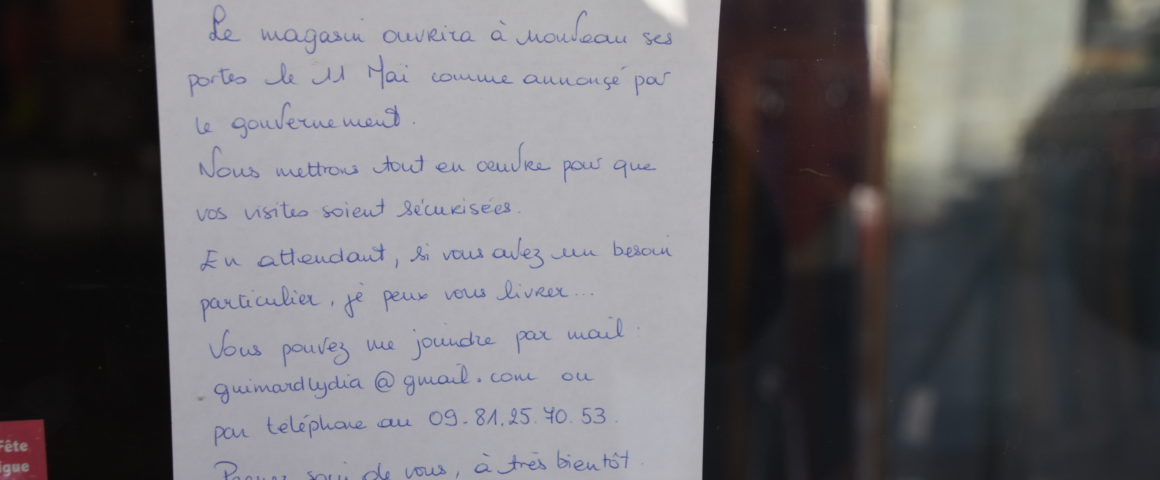 Le magasin ouvrira à nouveau ses
portes le 11 Mai comme annonçé par
le gouvernement.
Nous mettrons tout en œuvre pour que
vos visites soient sécurisées.
En attendant, si vous avez un besoin
particulier, je peux vous livrer...
Vous pouvez me joindre par mail :
guimardlydia@gmail.com ou
par teléphone au 09.81.25.70.53.
Prenez soin de vous, à très bientôt.
Fête
igue